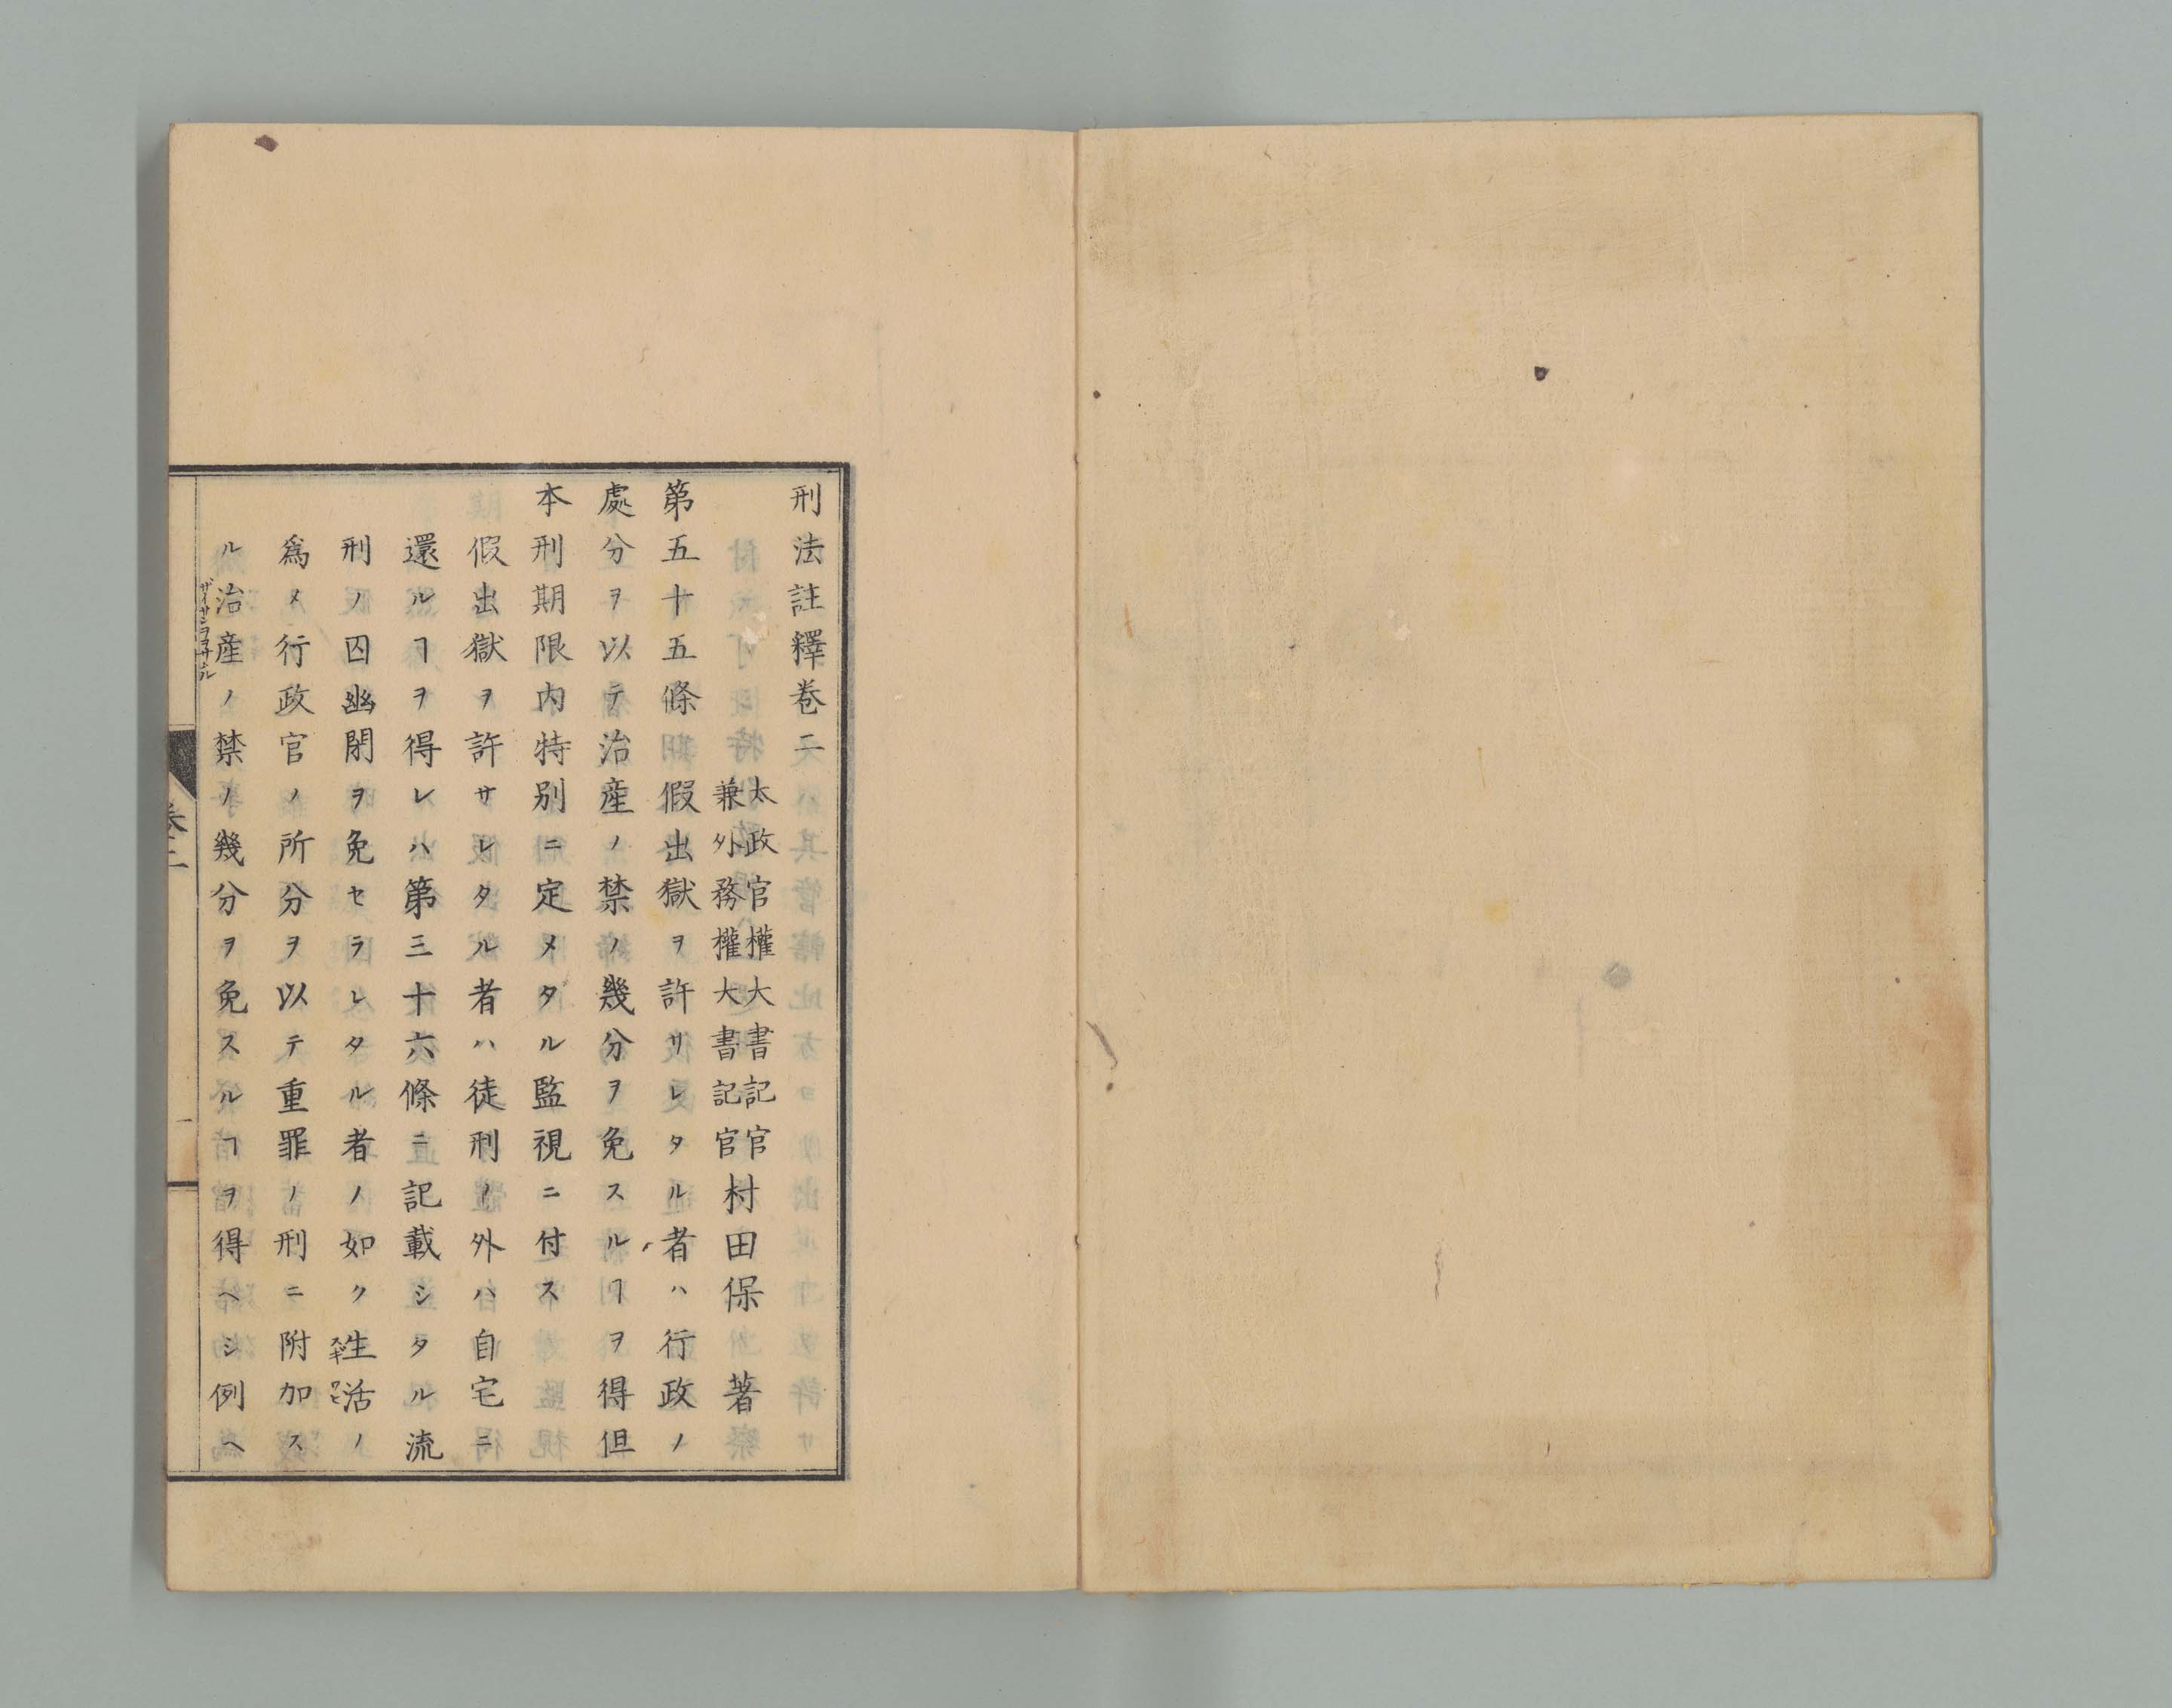 刑法註釋卷二
太政官權大書記官
兼外務權大書記官
村田保著
第五十五條 假出獄ヲ許サレタル者ハ行政ノ
處分ヲ以テ治産ノ禁ノ幾分ヲ免スルヿヲ得但
本刑期限内特別ニ定メタル監視ニ付ス
假出獄ヲ許サレタル者ハ徒刑ノ外ハ自宅ニ
還ルヿヲ得レハ第三十六條ニ記載シタル流
刑ノ囚幽閉ヲ免セラレタル者ノ如ク生活ノ
爲メ行政官ノ所分ヲ以テ重罪ノ刑ニ附加ス
ル治産ノ禁ノ幾分ヲ免スルヿヲ得ヘシ例ヘ
卷二
一